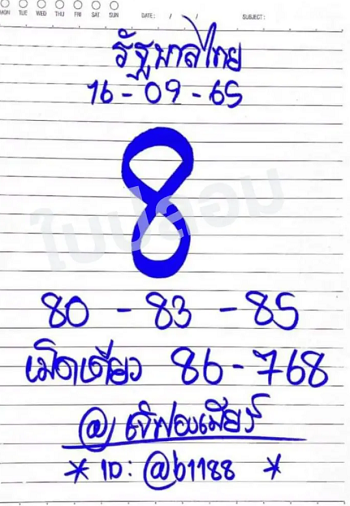 MON TUE WED THU FRI SAT SUN DATE: / / SUBJECT:
รัฐบาลไทย
16-09-65
8
ใบปลอม
80 - 83 - 85
เม็ดเดียว 86-768
* ID: @b1188 *